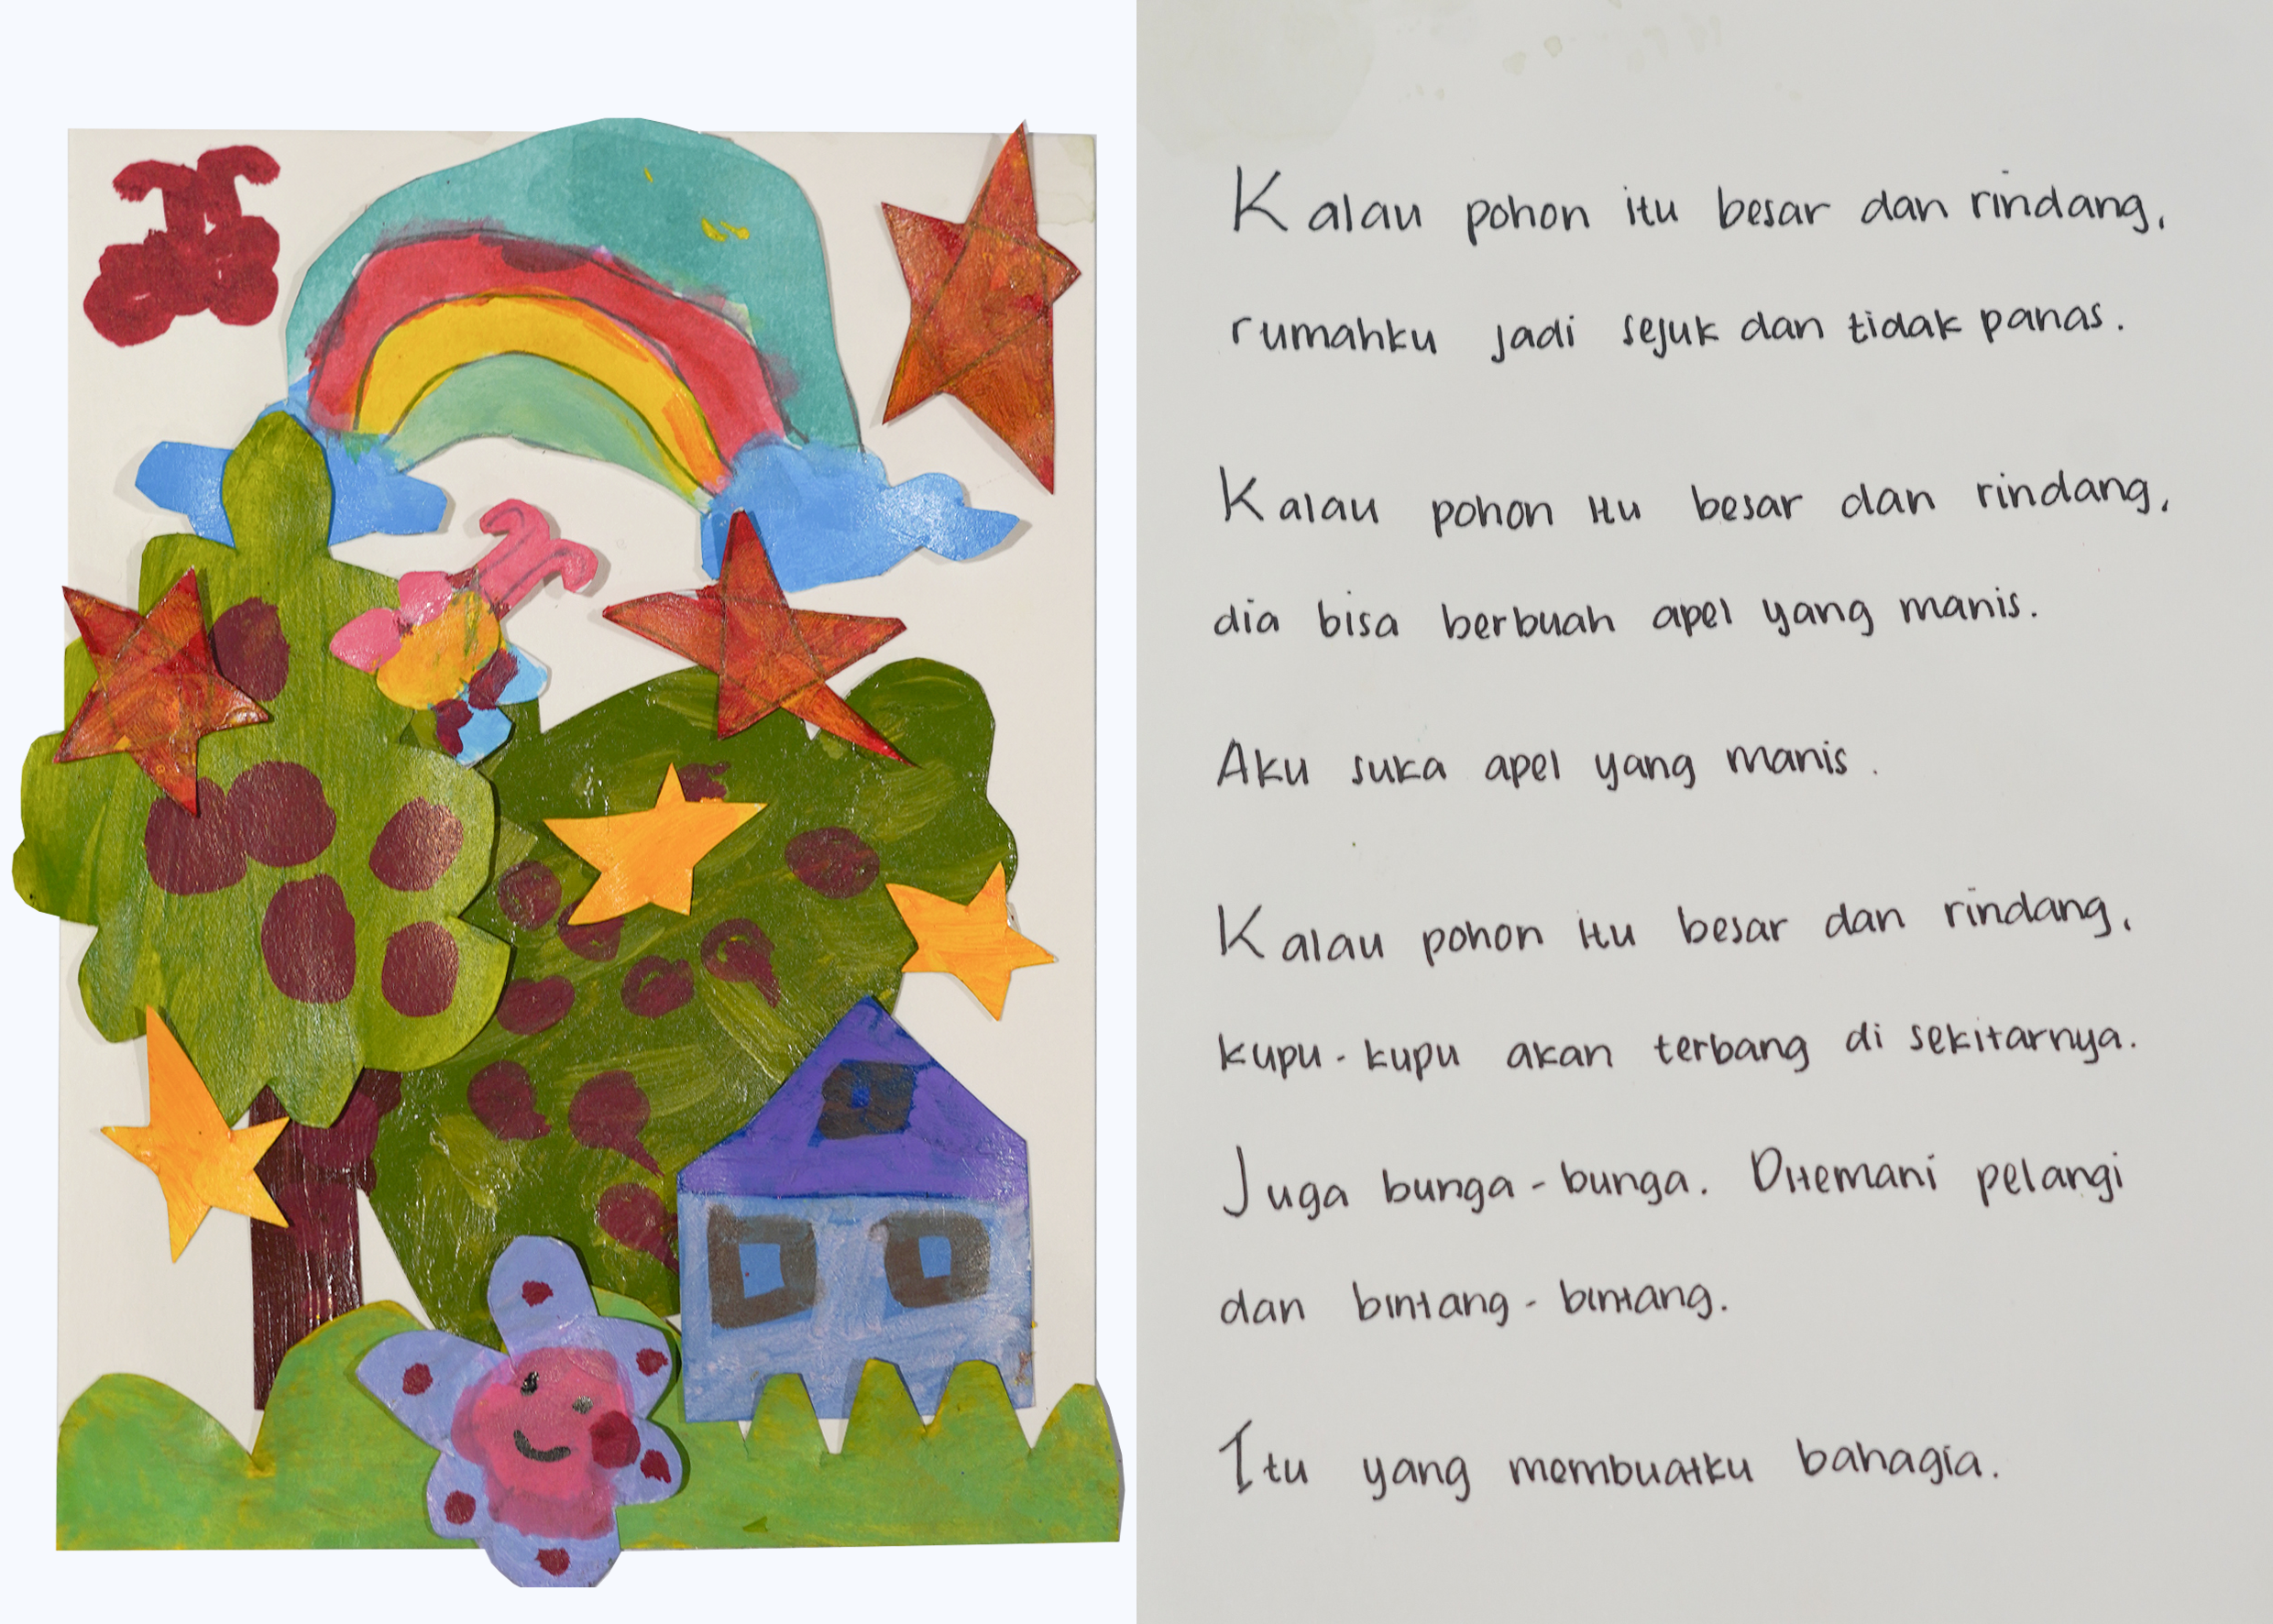 Kalau pohon itu besar dan rindang,
rumahku jadi sejuk dan tidak panas.
Kalau pohon itu besar dan rindang,
dia bisa berbuah apel yang manis.
Aku suka apel yang manis.
Kalau pohon itu besar dan rindang,
kupu-kupu akan terbang di sekitarnya.
Juga bunga-bunga. Ditemani pelangi
dan bintang-bintang.
Itu yang membuatku bahagia.